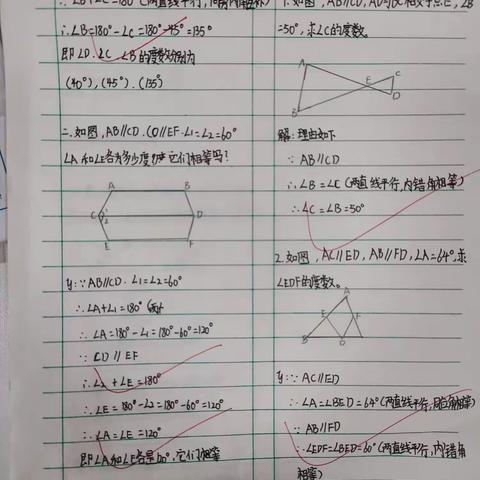 ∴∠B=180°-∠C=180°-45°=135°
即∠D.∠C、∠B的度数分别为
(40°),(45°).(135°)
二.如图,AB∥CD.CD∥EF.∠1=∠2=60°
∠A和∠E各为多少度?它们相等吗?
A B
C 1 2 D
E F
y:∵AB∥CD.∠1=∠2=60°
∴∠A+∠1=180°
∴∠A=180°-∠1=180°-60°=120°
∵CD∥EF
∴∠2+∠E=180°
∴∠E=180°-∠2=180°-60°=120°
∴∠A=∠E=120°
即∠A和∠E各是120°.它们相等
1.如图,AB∥CD,AD与BC相交于点E,∠B
=50°,求∠C的度数。
A E C
B D
解:理由如下
∵AB∥CD
∴∠B=∠C(两直线平行,内错角相等)
∴∠C=∠B=50°
2.如图,AC∥ED,AB∥FD,∠A=64°,求
∠EDF的度数。
A
E F
B D
y:∵AC∥ED
∴∠A=∠BED=64°(两直线平行,同位角相等)
∵AB∥FD
∴∠EDF=∠BED=60°(两直线平行,内错角
相等)